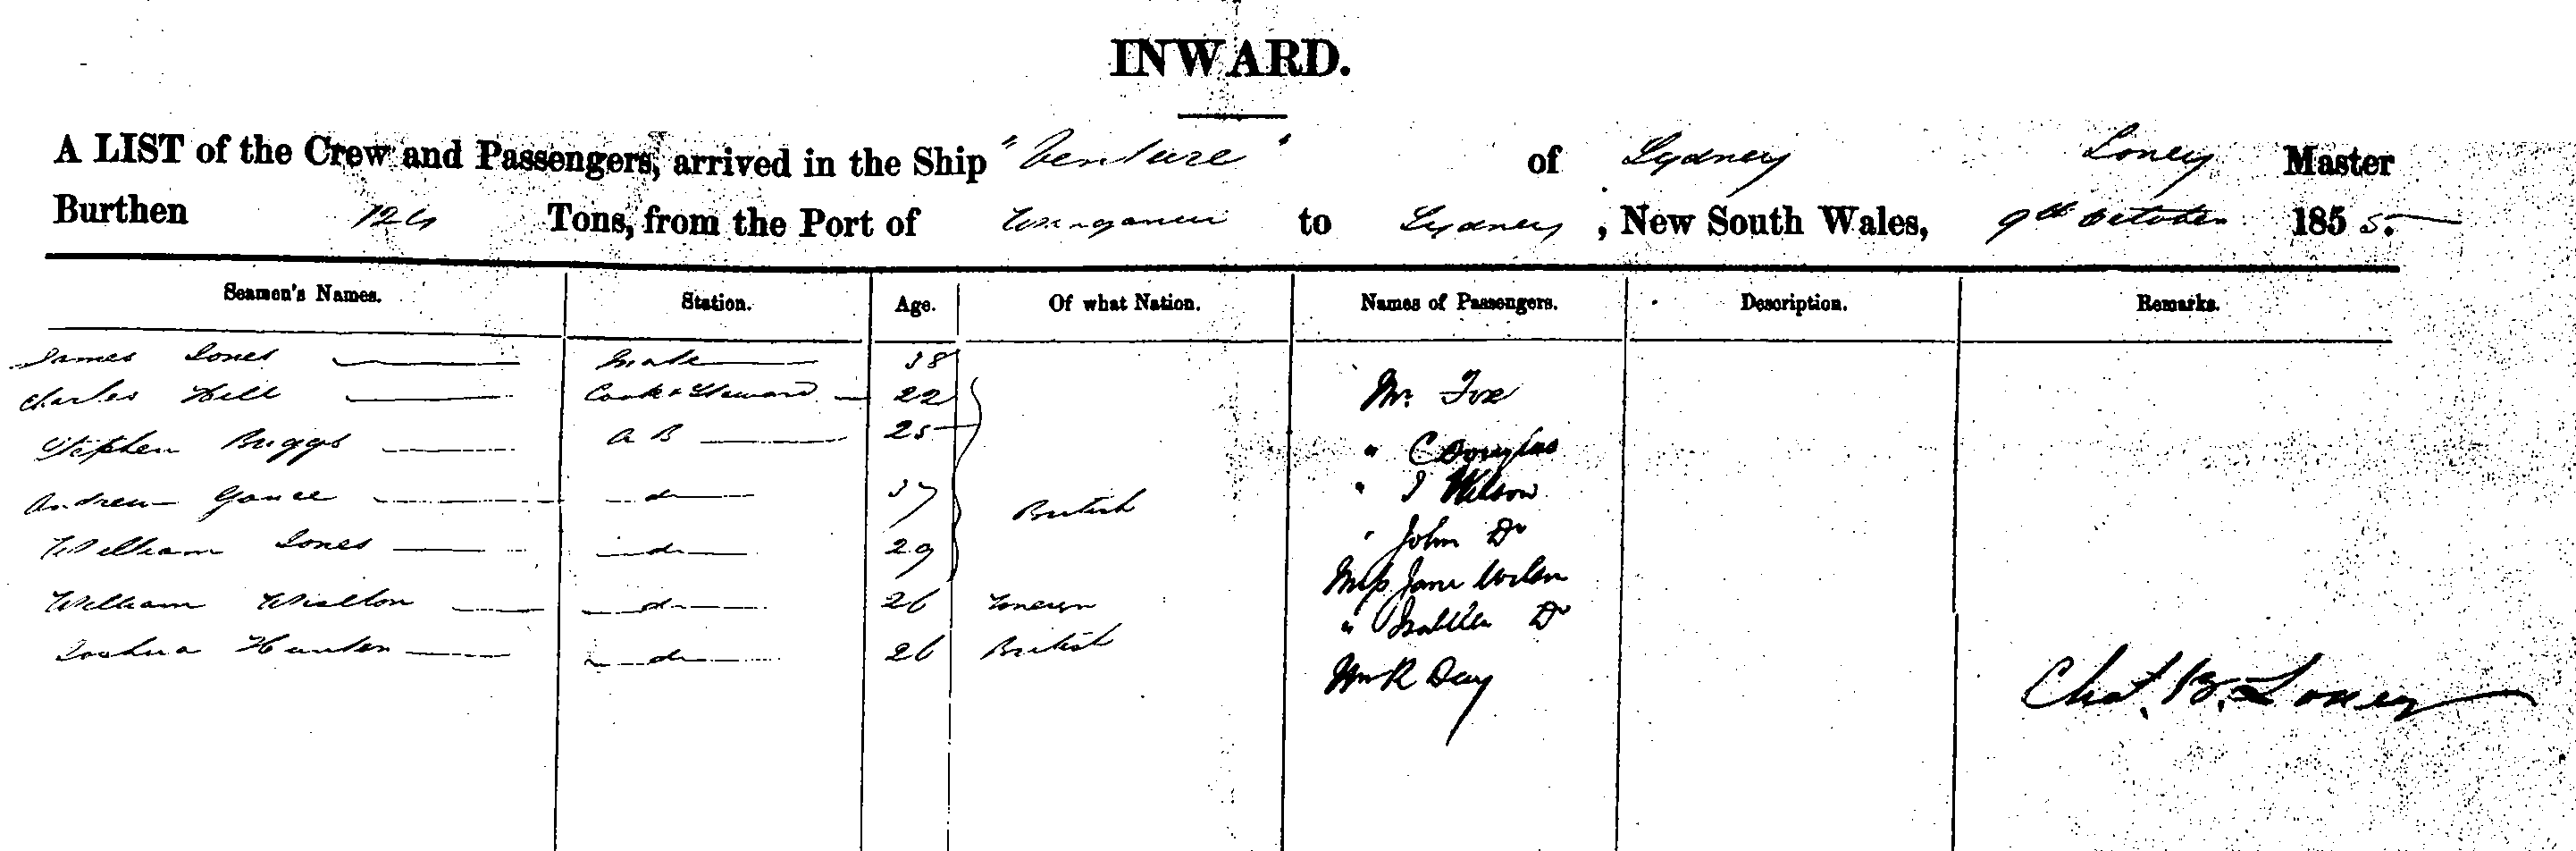 INWARD.
A LIST of the Crew and Passengers, arrived in the Ship "Venture" of Sydney Loney Master
Burthen 124 Tons, from the Port of Wanganui to Sydney, New South Wales, 9th October 1855.
Seamen's Names. Station. Age. Of what Nation. Names of Passengers. Description. Remarks.
James Jones Mate 38
Charles Hill Cook & Steward 22 Mr. Fox
Stephen Briggs A B 25 " C Douglas
Andrew do 37 British " J Wilson
William Jones do 29 " John Do
William Walton do 26 Miss Jane Wilson
Joshua Hunton do 26 British " Isabella Do
Wm R Day
Chas. B. Loney